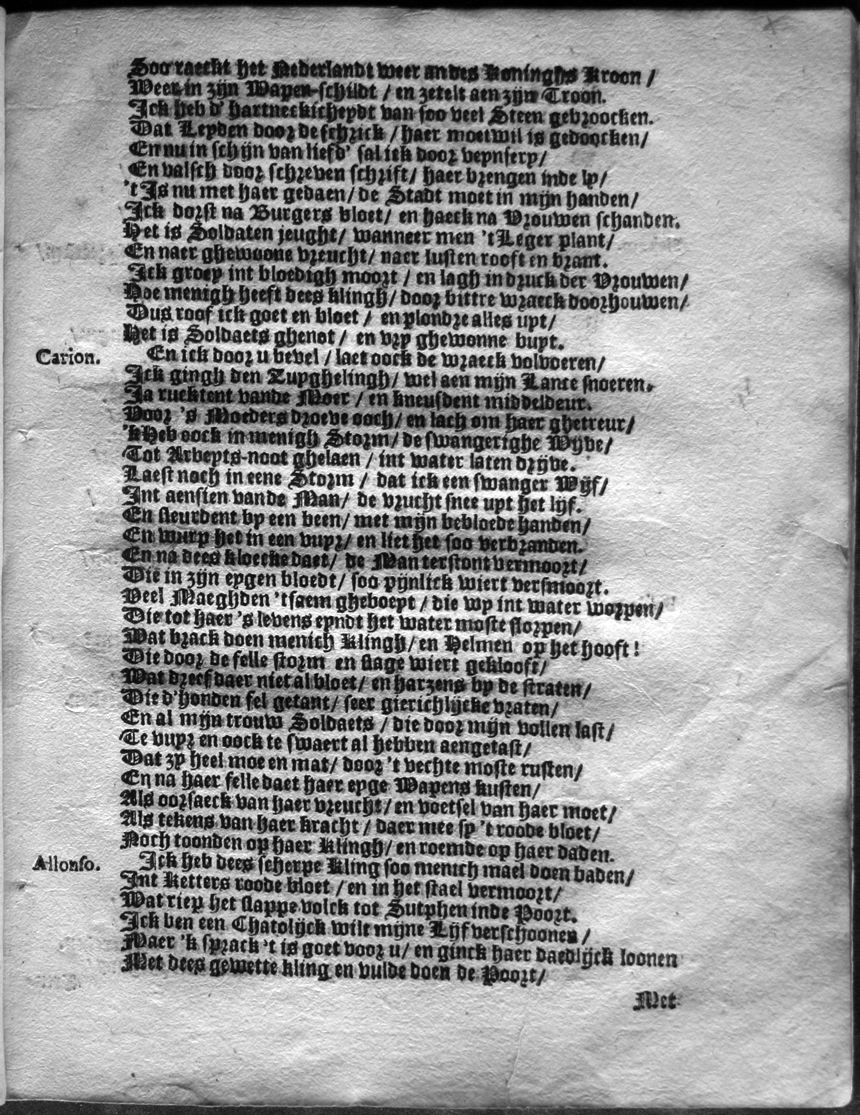 Soo raeckt het Nederlandt weer an des Koninghs Kroon /
Weer in zijn Wapen-schildt / en zetelt aen zijn Troon.
Ick heb d' hartneckicheydt van soo veel Steen gebroocken.
Dat Leyden door de schrick / haer moetwil is gedoocken/
En nu in schijn van liefd' sal ick door veynsery/
En valsch door schreven schrift/ haer brengen inde ly/
't Is nu met haer gedaen/ de Stadt moet in mijn handen/
Ick dorst na Burgers bloet/ en haeck na Vrouwen schanden.
Het is Soldaten jeught/ wanneer men 't Leger plant/
En naer ghewoone vreucht/ naer lusten rooft en brant.
Ick groey int bloedigh moort / en lagh in druck der Vrouwen/
Hoe menigh heeft dees klingh/ door bittre wraeck doorhouwen/
Dus roof ick goet en bloet / en plondre alles uyt/
Het is Soldaets ghenot / en vry ghewonne buyt.
Carion. En ick door u bevel / laet oock de wraeck volvoeren/
Ick gingh den Zuyghelingh/ wel aen mijn Lance snoeren.
Ja rucktent vande Moer / en kneusdent middeldeur.
Voor 's Moeders droeve ooch/ en lach om haer ghetreur/
'k Heb oock in menigh Storm/ de swangerighe Wyve/
Tot Arbeyts-noot ghelaen / int water laten dryve.
Laest noch in eene Storm / dat ick een swanger Wijf/
Int aensien vande Man/ de vrucht snee uyt het lijf.
En sleurdent by een been/ met mijn bebloede handen/
En wurp het in een vuyr/ en liet het soo verbranden.
En na dees kloecke daet/ de Man terstont vermoort/
Die in zijn eygen bloedt/ soo pijnlick wiert versmoort.
Veel Maeghden 'tsaem gheboeyt / die wy int water worpen/
Die tot haer 's levens eyndt het water moste slorpen/
Wat brack doen menich Klingh/ en Helmen op het hooft!
Die door de felle storm en slage wiert geklooft/
Wat dreef daer niet al bloet/ en harzens by de straten/
Die d'honden fel getant/ seer gierichlijcke vraten/
En al mijn trouw Soldaets / die door mijn vollen last/
Te vuyr en oock te swaert al hebben aengetast/
Dat zy heel moe en mat/ door 't vechte moste rusten/
En na haer felle daet haer eyge Wapens kusten/
Als oorsaeck van haer vreucht/ en voetsel van haer moet/
Als tekens van haer kracht / daer mee sy 't roode bloet/
Noch toonden op haer Klingh/ en roemde op haer daden.
Allonso. Ick heb dees scherpe Kling soo menich mael doen baden/
Int Ketters roode bloet / en in het stael vermoort/
Wat riep het slappe volck tot Sutphen inde Poort.
Ick ben een Chatolijck wilt mijne Lijf verschoonen /
Maer 'k sprack 't is goet voor u/ en ginck haer daedlijck loonen
Met dees gewette kling en vulde doen de Poort/
Met